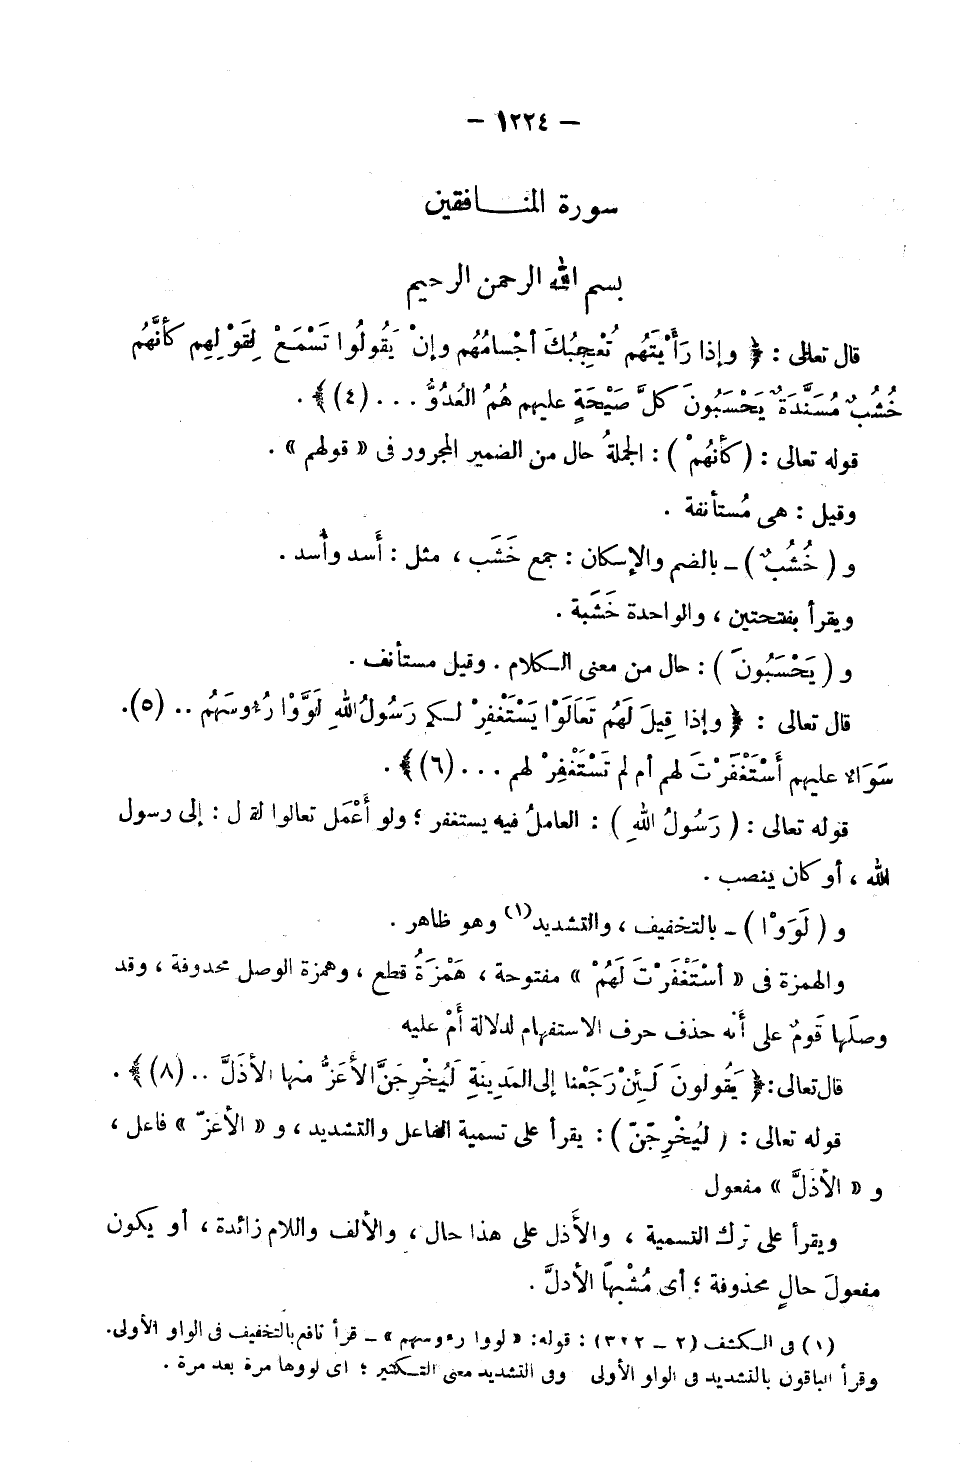 — ١٢٢٤ —
سورة المنـــافقين
بسم الله الرحمن الرحيم
قال تعالى : ﴿ وإذا رَأَيْتَهُم تُعْجِبُكَ أجْسامُهُم وإنْ يَقُولُوا تَسْمَعْ لِقَوْلِهِم كَأنَّهُم
خُشُبٌ مُسَنَّدَةٌ يَحْسَبُونَ كلَّ صَيْحَةٍ عليهم هُمُ العُدُوُّ ... (٤) ﴾ .
قوله تعالى : ( كأنهُمْ ) : الجملةُ حال من الضمير المجرور فى « قولهم » .
وقيل : هى مُستأنفة .
و ( خُشُبٌ ) – بالضم والإسكان : جمع خَشَب ، مثل : أَسد وأُسد .
ويقرأ بفتحتين ، والواحدة خَشَبة .
و ( يَحْسَبُونَ ) : حال من معنى الـكلام . وقيل مستأنف .
قال تعالى : ﴿ وإذا قِيلَ لَهُم تَعَالَوْا يَسْتَغْفِرْ لـكم رَسُولُ اللهِ لَوَّوْا رُءوسَهُم .. (٥).
سَوَاء عليهم أَسْتَغْفَرْتَ لهم أم لم تَسْتَغْفِرْ لهم ... (٦) ﴾ .
قوله تعالى : ( رَسُولُ اللهِ ) : العاملُ فيه يستغفر ؛ ولو أَعْمَل تعالوا لقال : إلى رسول
الله ، أو كان ينصب .
و ( لَوَوْا ) – بالتخفيف ، والتشديد(١) وهو ظاهر .
والهمزة فى « أسْتَغْفَرْتَ لَهُمْ » مفتوحة ، هَمْزَةُ قطع ، وهمزة الوصل محدوفة ، وقد
وصلَها قَومٌ على أَنه حذف حرف الاستفهام لدلالة أَمْ عليه
قال تعالى : ﴿ يَقُولونَ لَـئِنْ رَجَعْنا إلى المَدِينةِ لَيُخْرِجَنَّ الأَعَزُّ منها الأذَلَّ .. (٨) ﴾ .
قوله تعالى : ( لَيُخْرِجَنّ ) : يقرأ على تسمية الفاعل والتشديد ، و « الأعزّ » فاعل ،
و « الأذلَّ » مفعول
ويقرأ على ترك التسمية ، والأَذل على هذا حال ، والألف واللام زائدة ، أو يكون
مفعولَ حالٍ محذوفة ؛ أى مُشْبِهاً الأدلَّ .
(١) فى الـكشف (٢ – ٣٢٢) : قوله: « لووا رءوسهم » – قرأ نافع بالتخفيف فى الواو الأولى.
وقرأ الباقون بالتشديد فى الواو الأولى وفى التشديد معنى التـكثير ؛ اى لووها مرة بعد مرة .